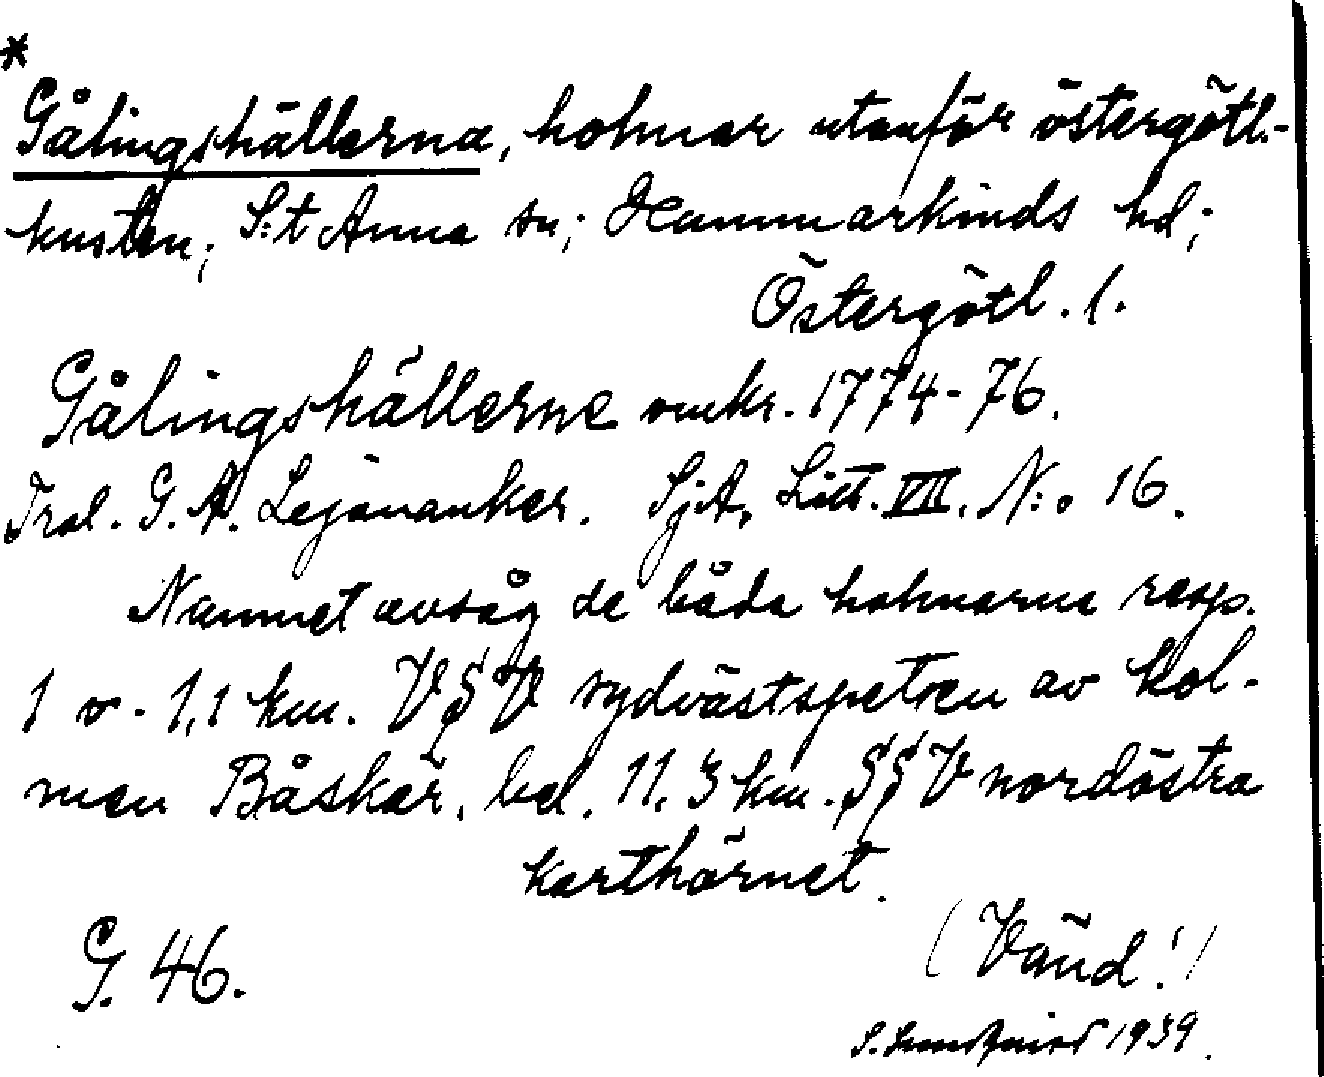 *
Gålingshällerna, holmar utanför östergötl.-
kusten; S:t Anna sn; Hammarkinds hd;
Östergötl. l.
Gålingshällerne omkr. 1774-76.
Tral. G. A. Lejonanker. SjA, Litt. VII. N:o 16.
Namnet avsåg de båda holmarna resp.
1 o. 1,1 km. VSV sydvästspetsen av hol-
men Båskär, bel. 11,3 km. SSV nordöstra
karthörnet.
(Vänd!)
G. 46.
1939.